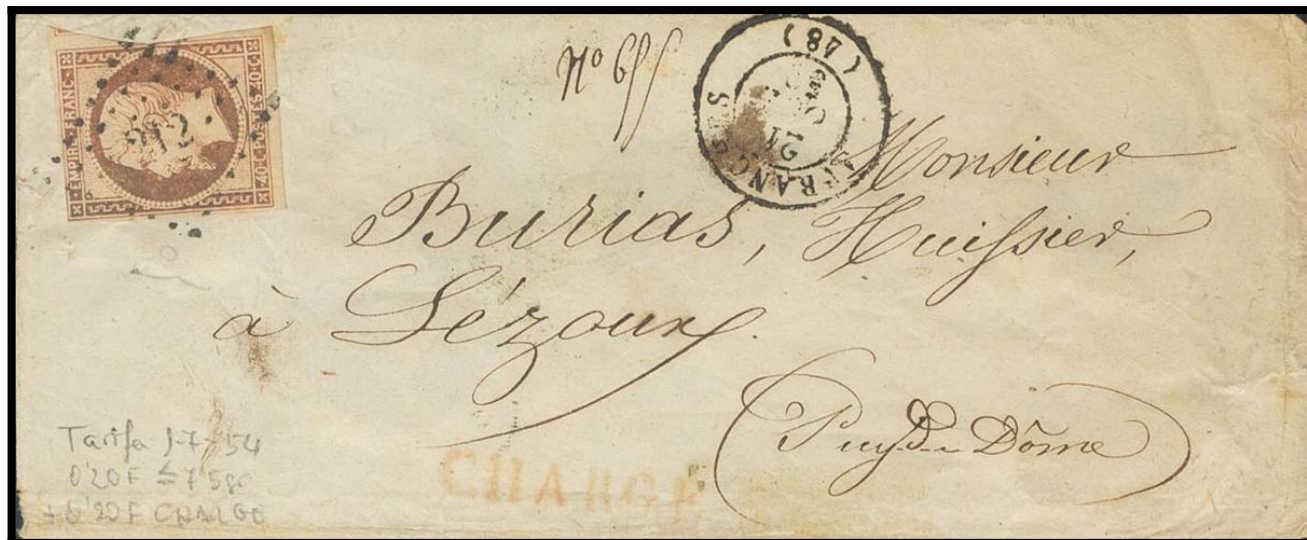 EMPIRE FRANC
40·C·POSTES·40·C
912
Nº 615
(48)
21
Monsieur
Burias, Huissier,
à Lézoux.
Puy-de-Dôme
Tarifa 1-7-54
0'20 F ≤ 7'5gr
+ 0'20 F CHARGO
CHARGÉ